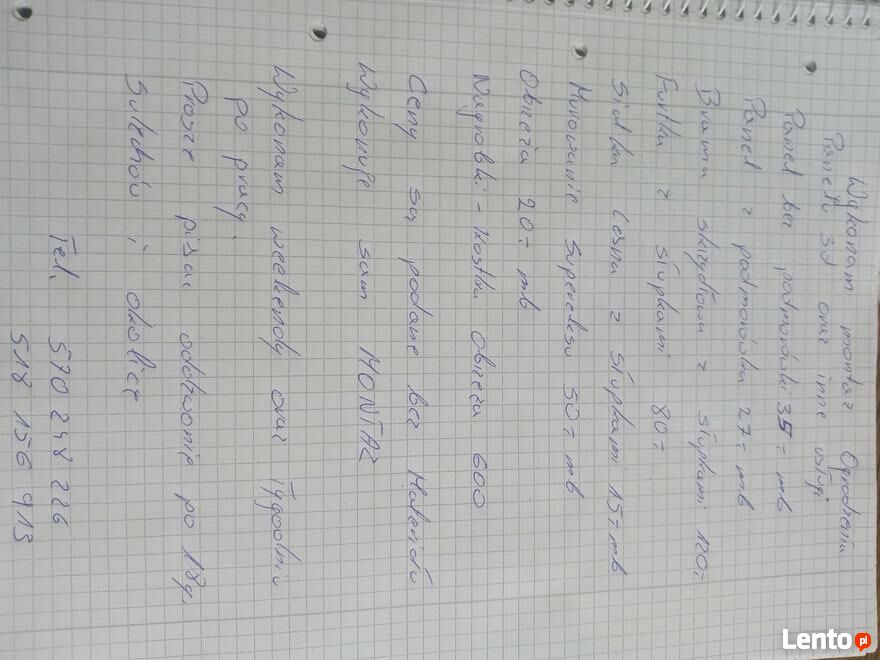 Wykonam montaż Ogrodzenia
Paneli 3d oraz inne usługi
Panel bez podmorówki 35,- mb
Panel z podmorówka 27,- mb
Brama skrzydłowa z słupkami 120,-
Furtka z słupkami 80,-
Siatka Leśna z słupkami 15,- mb
Murowanie Supereksu 50,- mb
Obrzeża 20,- mb
Nagrobki - kostka obrzeża 600
Ceny są podane bez Materiału
Wykonuje sam MONTAŻ
Wykonam weekendy oraz Tygodniu
po pracy.
Proszę pisać oddzwonię po 18g.
Sulechów i okolice
Tel. 570 248 226
518 156 913
Lento.pl